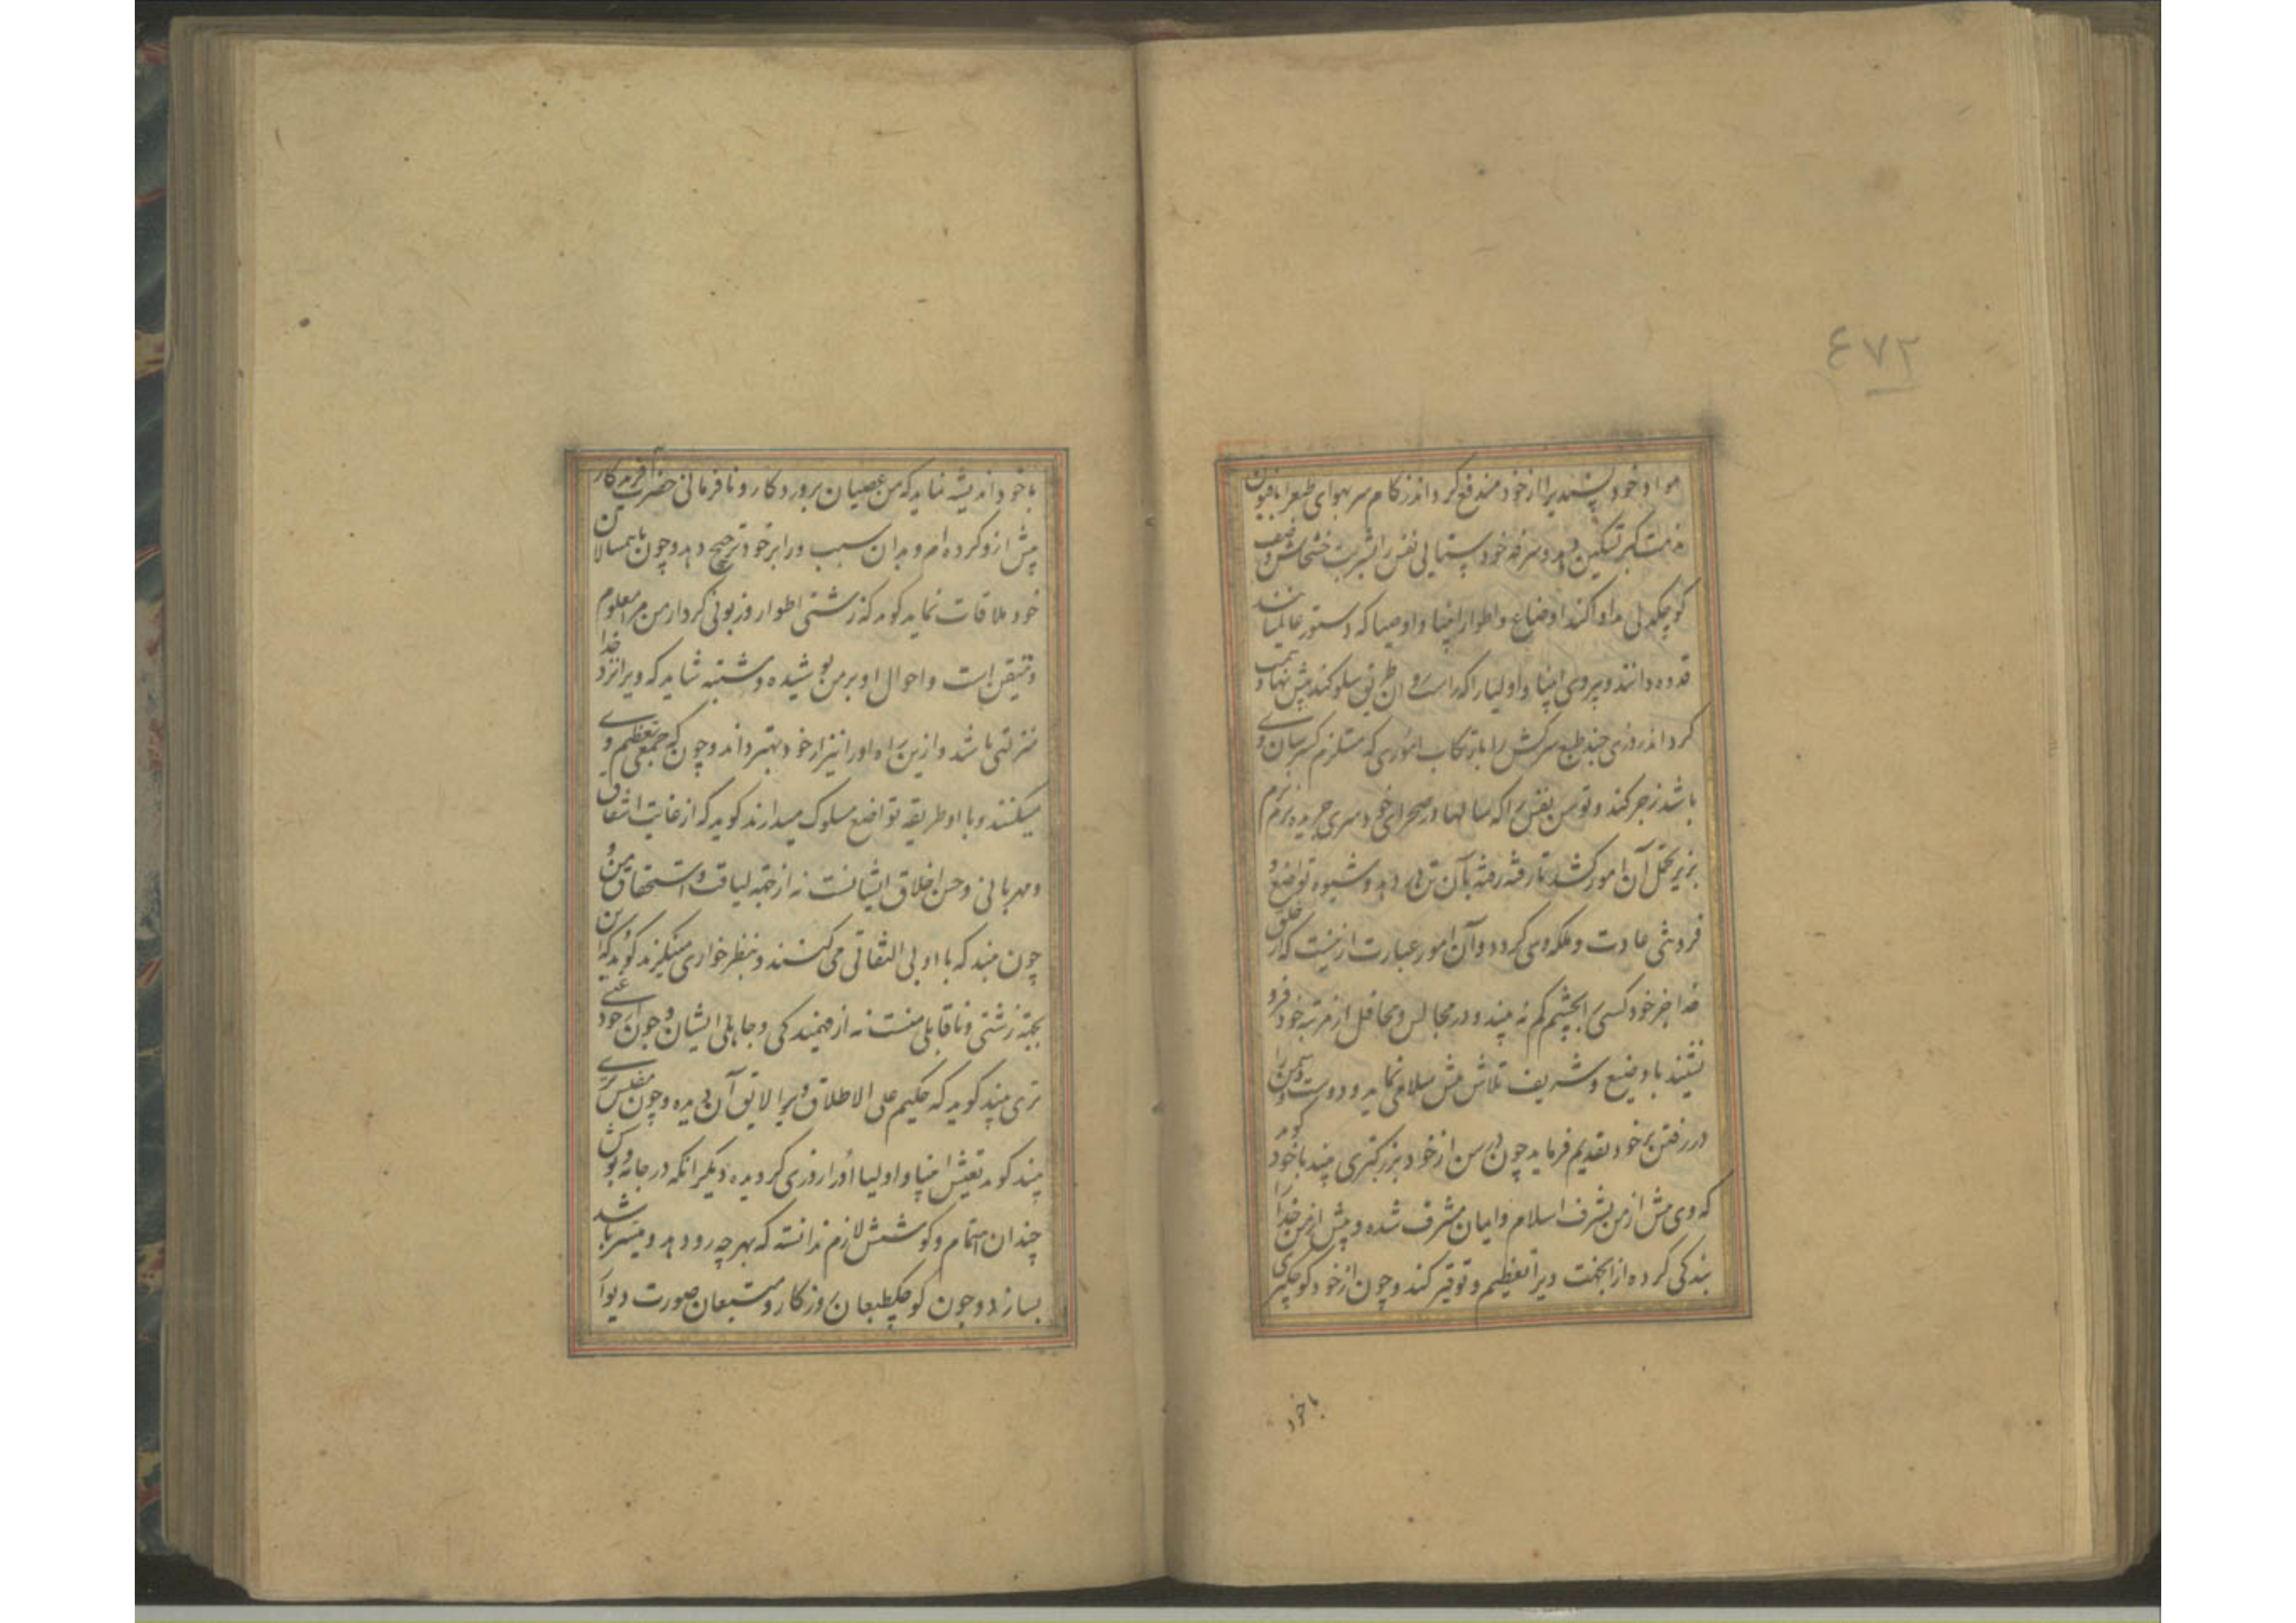 ٤٧٢
مواد خود پسندیرا از خود مندفع کرداند زکام سر بهوای طبعرا بافیون
مذلت کبر تسکین دهد و سرفه خود ستایی نفس را بشربت خشخاش وضعف
کوچکدلی مداوا کند اوضاع و اطوار انبیا و اوصیا که دستور عالمیانند
قدوه دانند و پیروی انبیا و اولیا را که راست روان طریق سلوکند پیش نهاد همت
کرداند روزی چند طبع سرکش را بارتکاب اموری که مستلزم کسر شان وی
باشد زجر کند و توسن نفس را که سالها در صحرای خودسری چریده نرم نرم
بزیر تحمل آن امور کشد تا رفته رفته بآن تن در دهد و شیوه تواضع و
فروتنی عادت و ملکه وی کردد و آن امور عبارت ازینست که از خلق
خدا جز خود کسی را بچشم کم نه بیند و در مجالس و محافل از مرتبه خود فرو
نشیند با وضیع و شریف تلاش پیش سلامی نماید و دوست و دشمن را
در رفتن بر خود تقدیم فرماید چون در سن از خود بزرکتری بیند با خود کوید
که وی پیش از من بشرف اسلام و ایمان مشرف شده و پیش از من خدا را
بندکی کرده از اینجهت ویرا تعظیم و توقیر کند و چون از خود کوچکتری
با خود
با خود اندیشه نماید که من عصیان پروردکار و نافرمانی حضرت آفریدکار
پیش ازو کرده ام و بدان سبب ورا بر خود ترجیح دهد و چون با همسالان
خود ملاقات نماید کوید که زشتی اطوار و زبونی کردار من مرا معلوم
و متیقن است و احوال او بر من پوشیده و مشتبه شاید که ویرا نزد خدا
منزلتی باشد و ازین راه او را نیز از خود بهتر داند و چون که جمعی تعظیم وی
میکنند و با او طریقه تواضع مسلوک میدارند کوید که از غایت اشفاق
و مهربانی و حسن اخلاق ایشانست نه از جهة لیاقت و استحقاق من و
چون بیند که با او بی التفاتی می کنند و بنظر خواری مینکرند کوید که این
بجهة زشتی و ناقابلی منست نه از خودپسندی و جاهلی ایشان و چون از خود غنی
تری بیند کوید که حکیم علی الاطلاق ویرا لایق آن دیده و چون مفلس تری
بیند کوید تعیش انبیا و اولیا او را روزی کردیده دیکر انکه در جامه و پوشش
چندان اهتمام و کوشش لازم ندانسته که بهر چه رو دهد و میسر باشد
بسازد و چون کوچکطبعان روزکار و متتبعان صورت دیوار